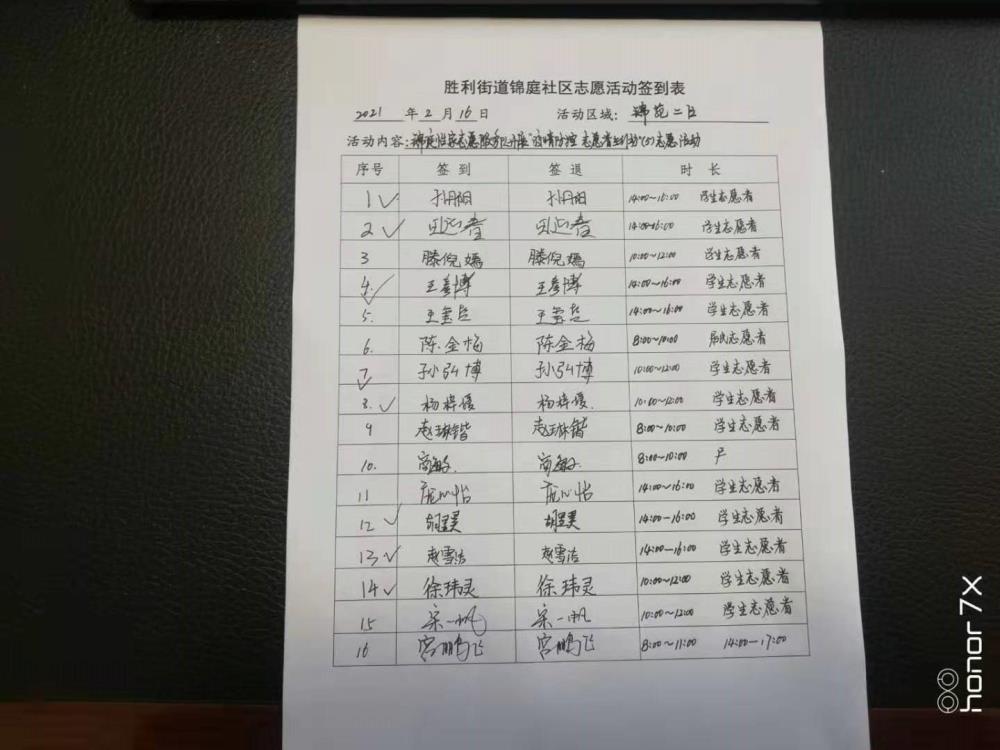 胜利街道锦庭社区志愿活动签到表
2021 年 2 月 16 日 活动区域: 锦苑二区
活动内容: 锦庭 志愿服务 开展"疫情防控 志愿者 行动" 志愿活动
序号 签到 签退 时长
1 孙丹阳 孙丹阳 14:00~16:00 学生志愿者
2 14:00-16:00 学生志愿者
3 滕倪嫣 滕倪嫣 10:00~12:00 学生志愿者
4. 王彦博 王彦博 14:00~16:00 学生志愿者
5. 14:00~16:00 学生志愿者
6. 陈金梅 陈金梅 8:00~10:00 居民志愿者
7 孙弘博 孙弘博 10:00~12:00 学生志愿者
8. 杨梓媛 杨梓媛. 10:00~12:00 学生志愿者
9 赵琳锴 赵琳锴 8:00~10:00 学生志愿者
10. 8:00~10:00
11 庞心怡 庞心怡 14:00~16:00 学生志愿者
12 胡昱昊 胡昱昊 14:00-16:00 学生志愿者
13 赵雪洁 赵雪洁 14:00-16:00 学生志愿者
14 徐玮灵 徐玮灵 10:00~12:00 学生志愿者
15 宋一帆 宋一帆 10:00~12:00 学生志愿者
16 宫鹏飞 宫鹏飞 8:00~11:00 14:00-17:00
honor 7X